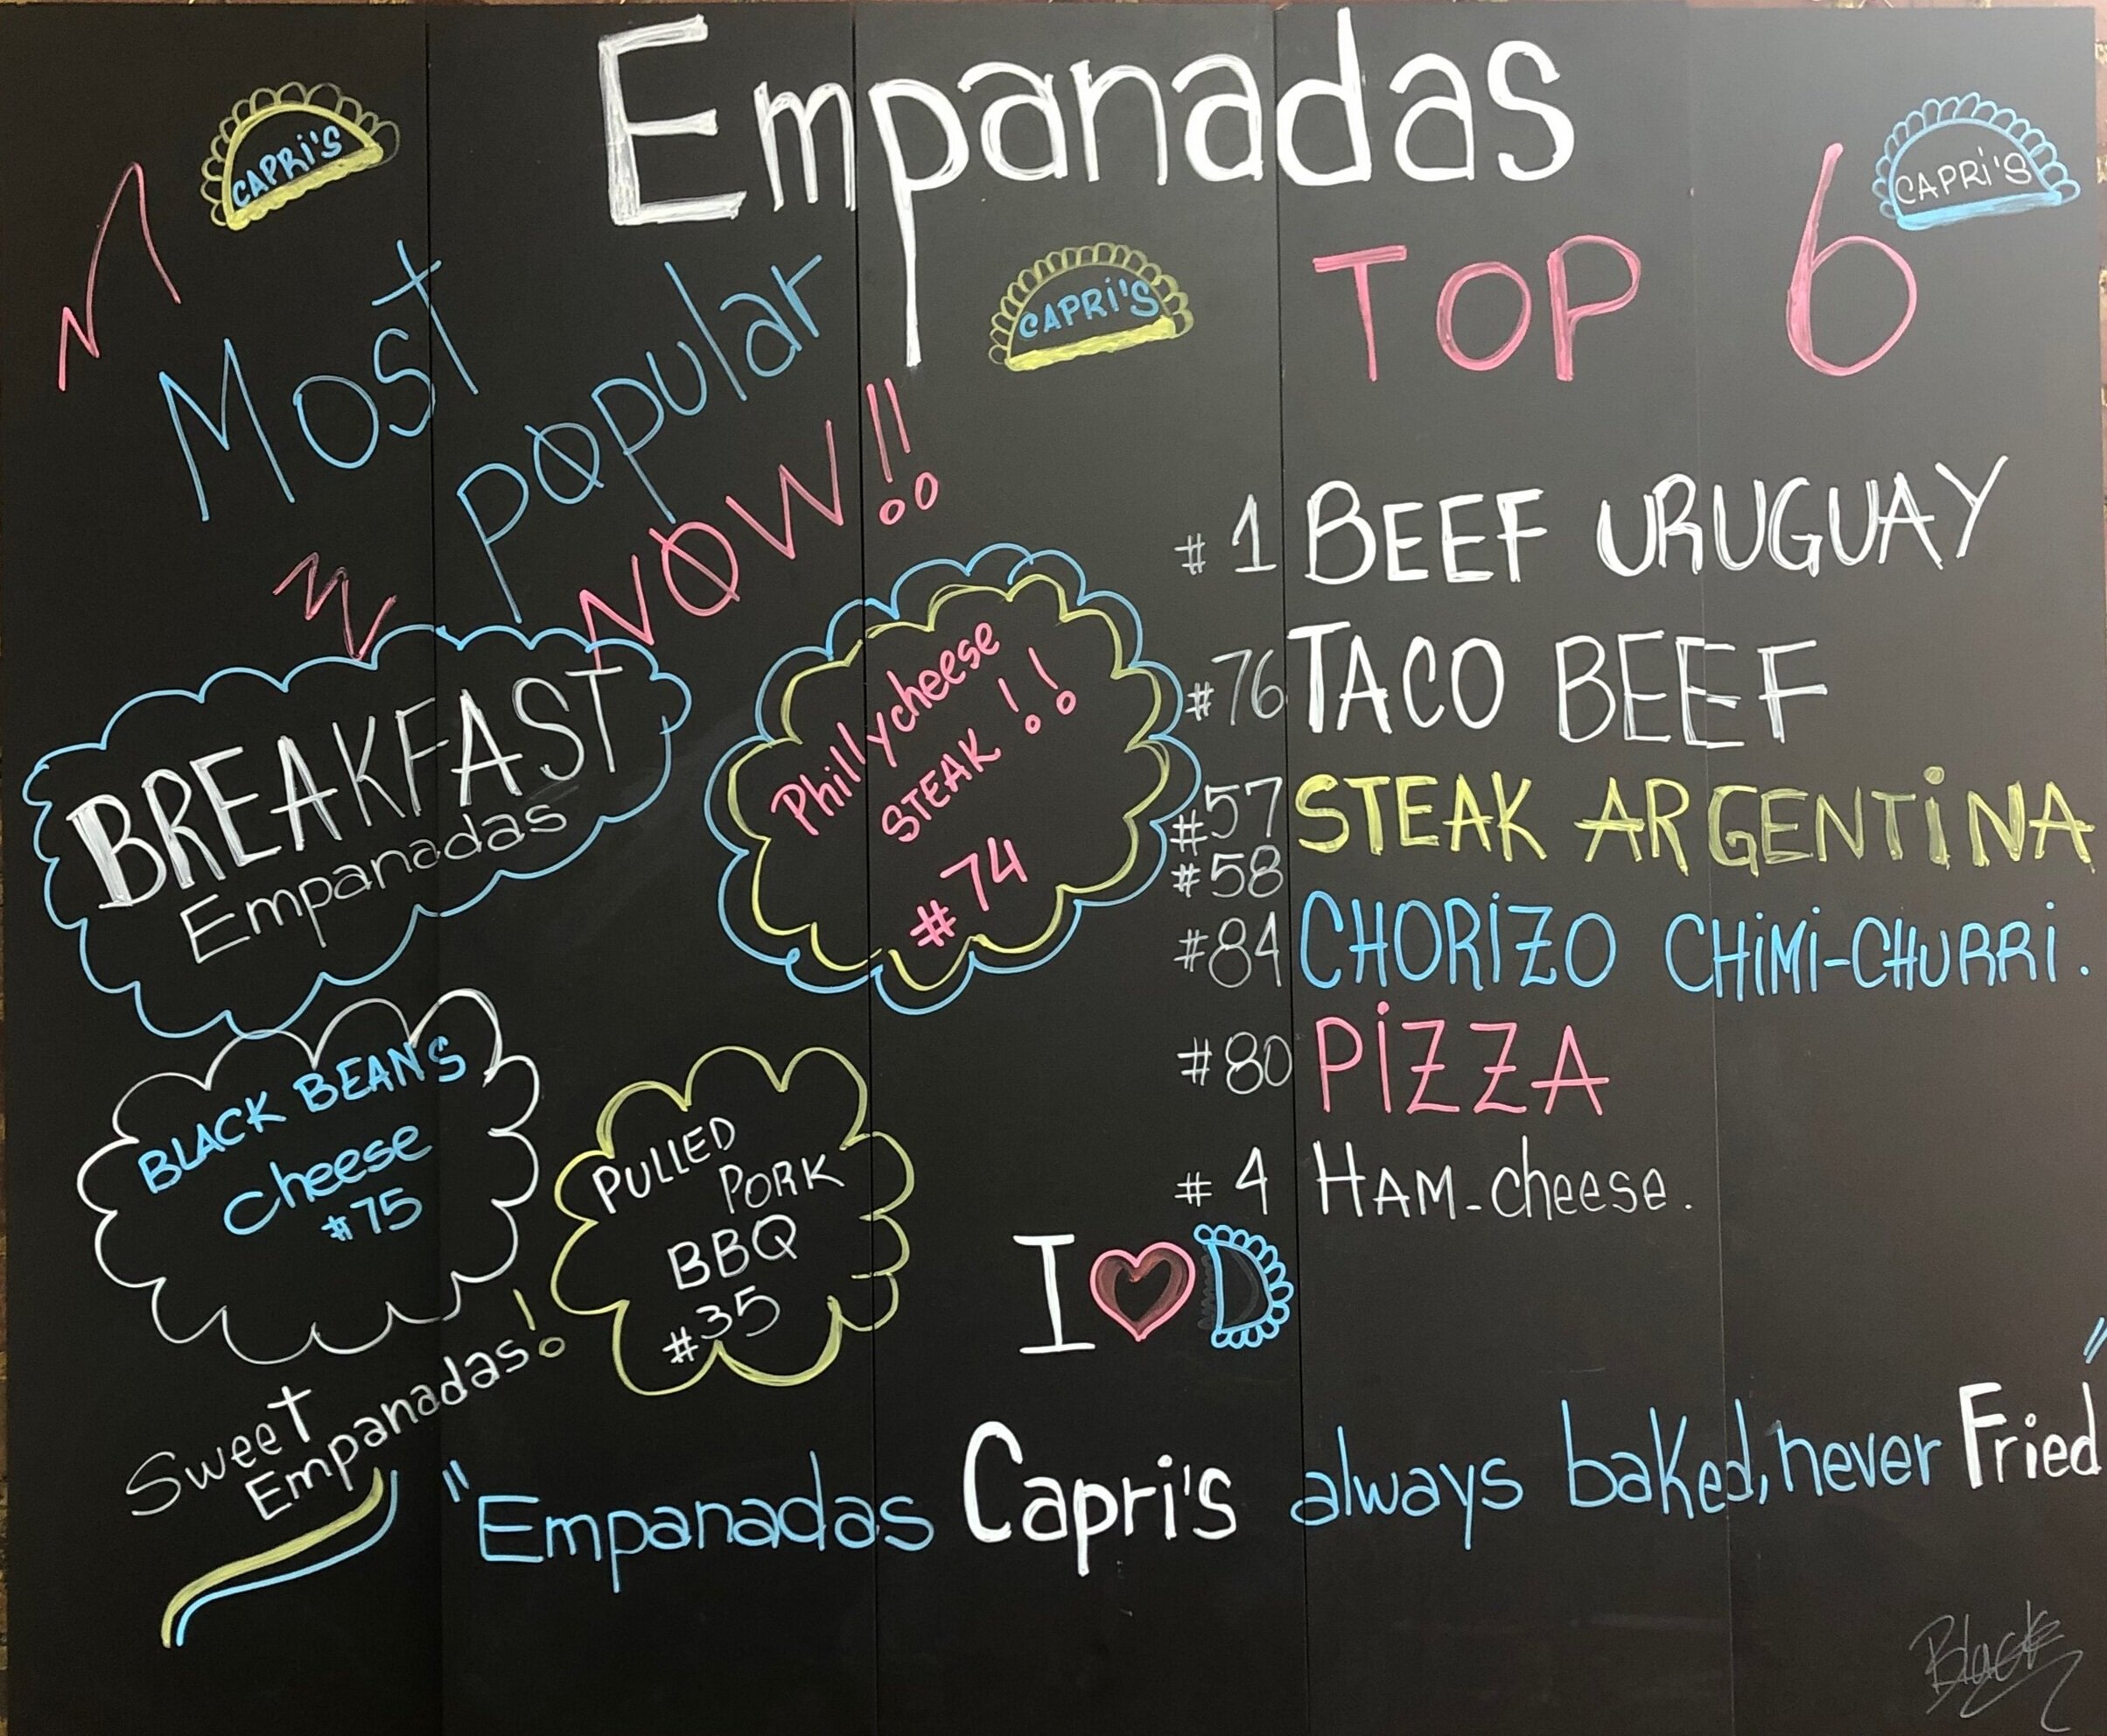 Empanadas
CAPRi'S
CAPRi'S
CAPRi'S
TOP 6
Most
popular
NOW!!
#1 BEEF URUGUAY
#76 TACO BEEF
#57 STEAK ARGENTiNA
#58
#84 CHORiZO CHiMi-CHURRi.
#80 PiZZA
#4 HAM-cheese.
Phillycheese
STEAK!!
#74
BREAKFAST
Empanadas
BLACK BEANS
cheese
#75
PULLED
PORK
BBQ
#35
I
Sweet
Empanadas!
"Empanadas Capri's always baked, never Fried"
Black